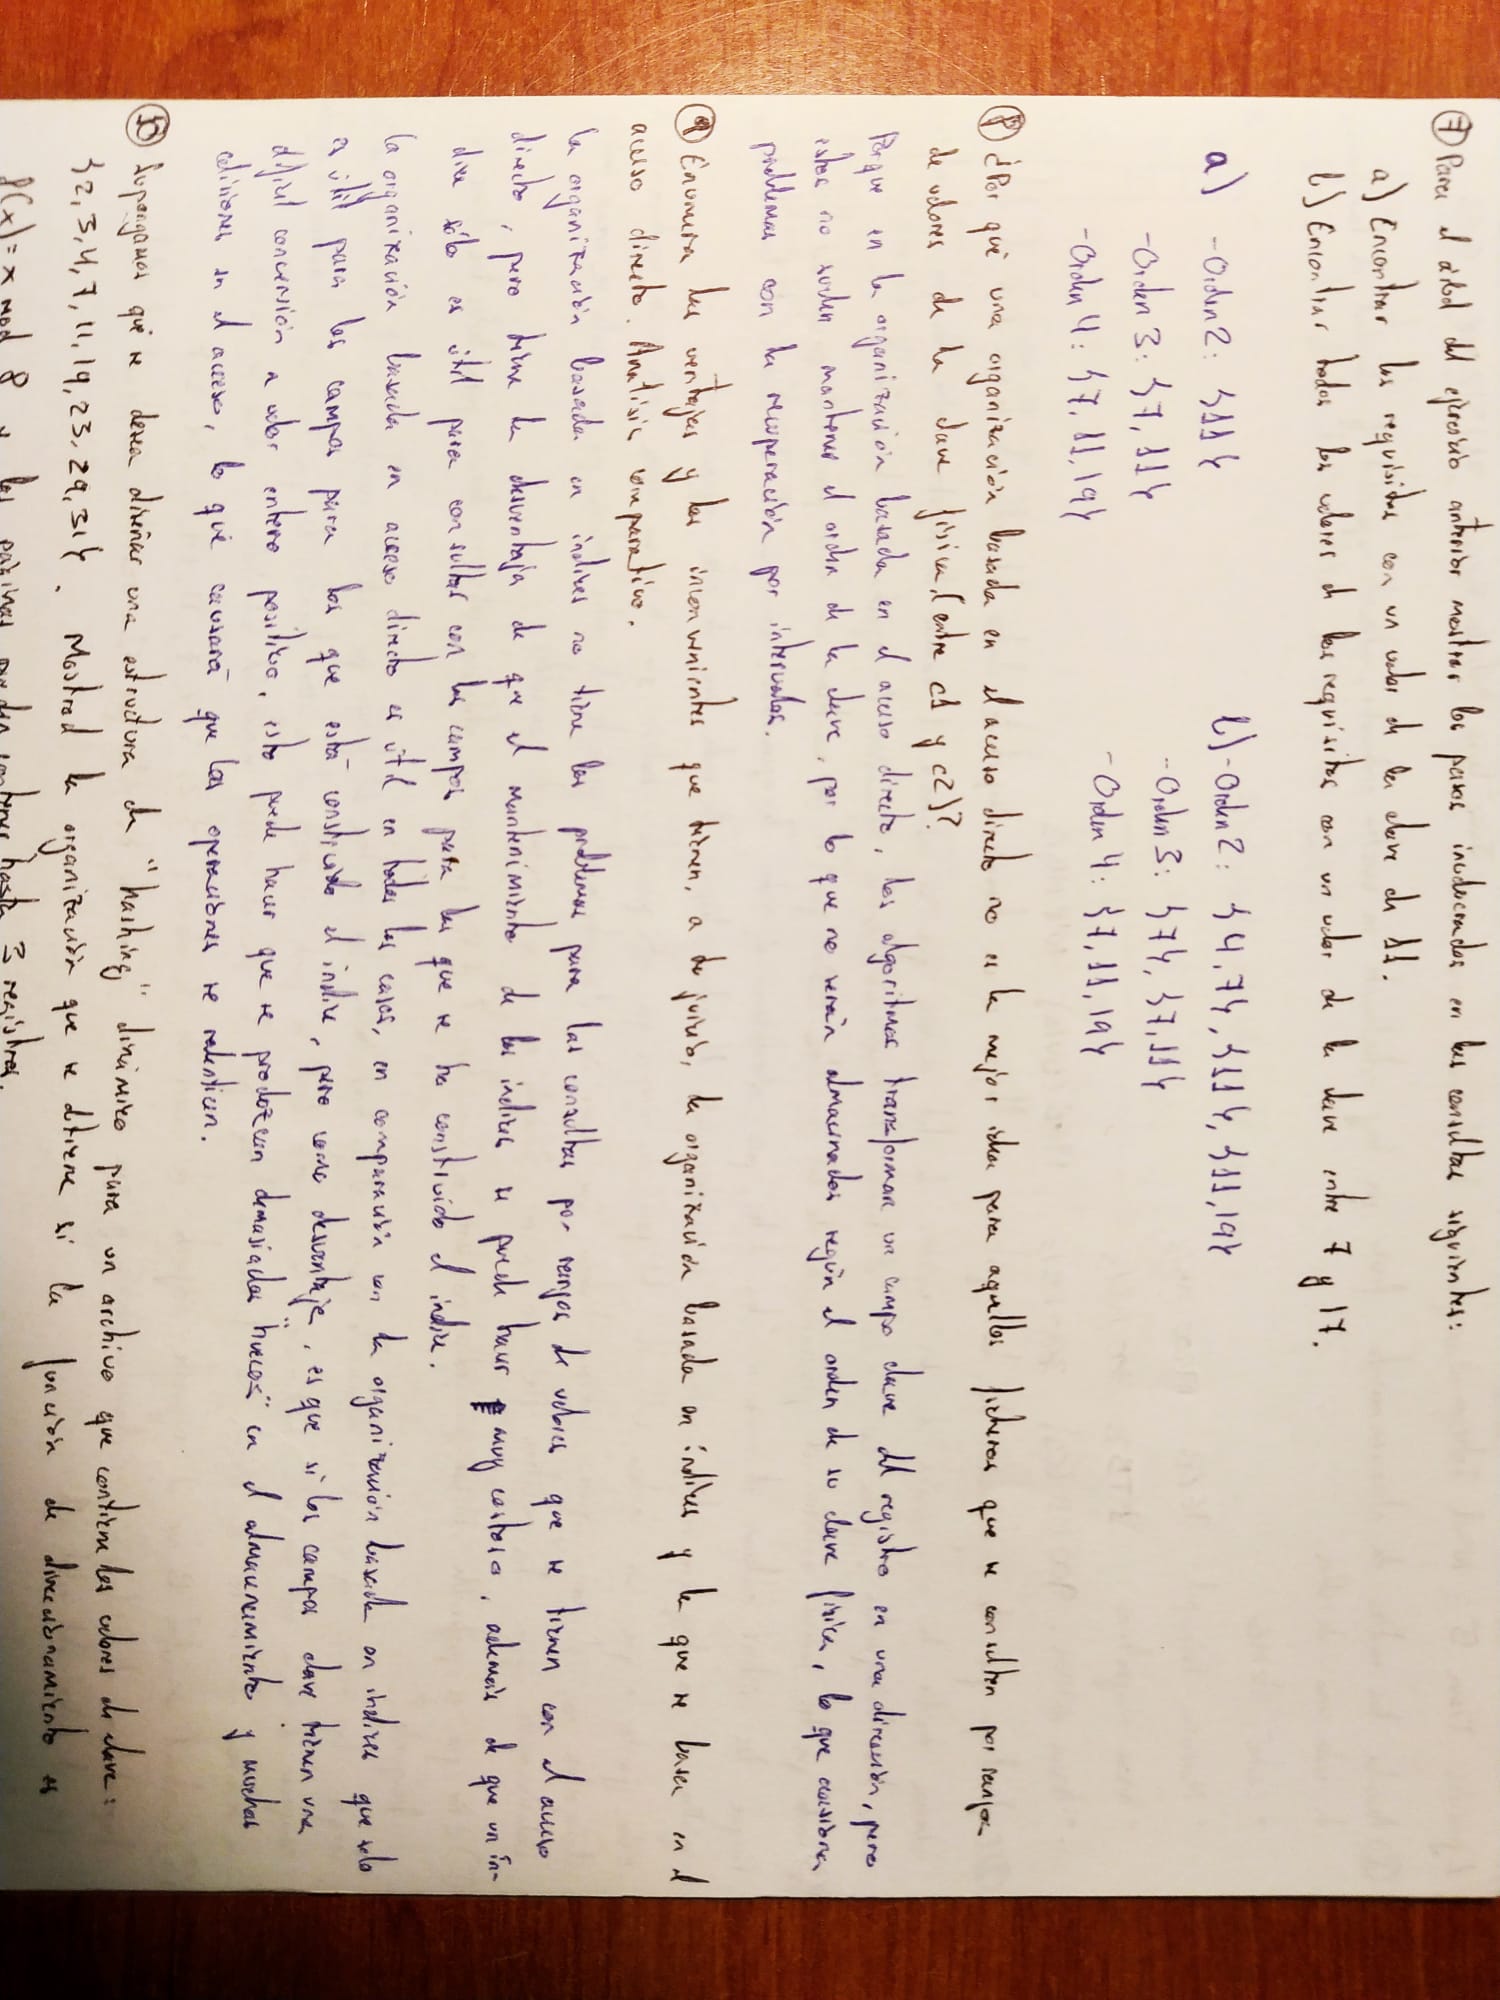 ⑦ Para el árbol del ejercicio anterior mostrar los pasos involucrados en las consultas siguientes:
a) Encontrar los registros con un valor de la clave de 11.
b) Encontrar todos los valores de los registros con un valor de la clave entre 7 y 17.
a) -Orden 2: {11}
-Orden 3: {7, 11}
-Orden 4: {7, 11, 19}
b) -Orden 2: {4, 7}, {11}, {11, 19}
-Orden 3: {7}, {7, 11}
-Orden 4: {7, 11, 19}
⑧ ¿Por qué una organización basada en el acceso directo no es la mejor idea para aquellos ficheros que se consulten por rangos
de valores de la clave física (entre c1 y c2)?
Porque en la organización basada en el acceso directo, los algoritmos transforman un campo clave del registro en una dirección, pero
estos no suelen mantener el orden de la clave, por lo que no serán almacenados según el orden de su clave física, lo que ocasiona
problemas con la recuperación por intervalos.
⑨ Enumera las ventajas y los inconvenientes que tienen, a tu juicio, la organización basada en índices y la que se basa en el
acceso directo. Análisis comparativo.
La organización basada en índices no tiene los problemas para las consultas por rangos de valores que se tienen con el acceso
directo, pero tiene la desventaja de que el mantenimiento de los índices se puede hacer muy costoso, además de que un ín-
dice sólo es útil para consultar con los campos para los que se ha construido el índice.
La organización basada en acceso directo es útil en todos los casos, en comparación con la organización basada en índices que solo
es útil para los campos para los que está construido el índice, pero como desventaja, es que si los campos clave tienen una
difícil conversión a valor entero positivo, esto puede hacer que se produzcan demasiados "huecos" en el almacenamiento y muchas
colisiones en el acceso, lo que causará que las operaciones se ralenticen.
⑩ Supongamos que se desea diseñar una estructura de "hashing" dinámico para un archivo que contiene los valores de clave:
{2, 3, 4, 7, 11, 19, 23, 29, 31}. Mostrad la organización que se obtiene si la función de direccionamiento es
f(x) = x mod 8 y las páginas pueden contener hasta 3 registros.